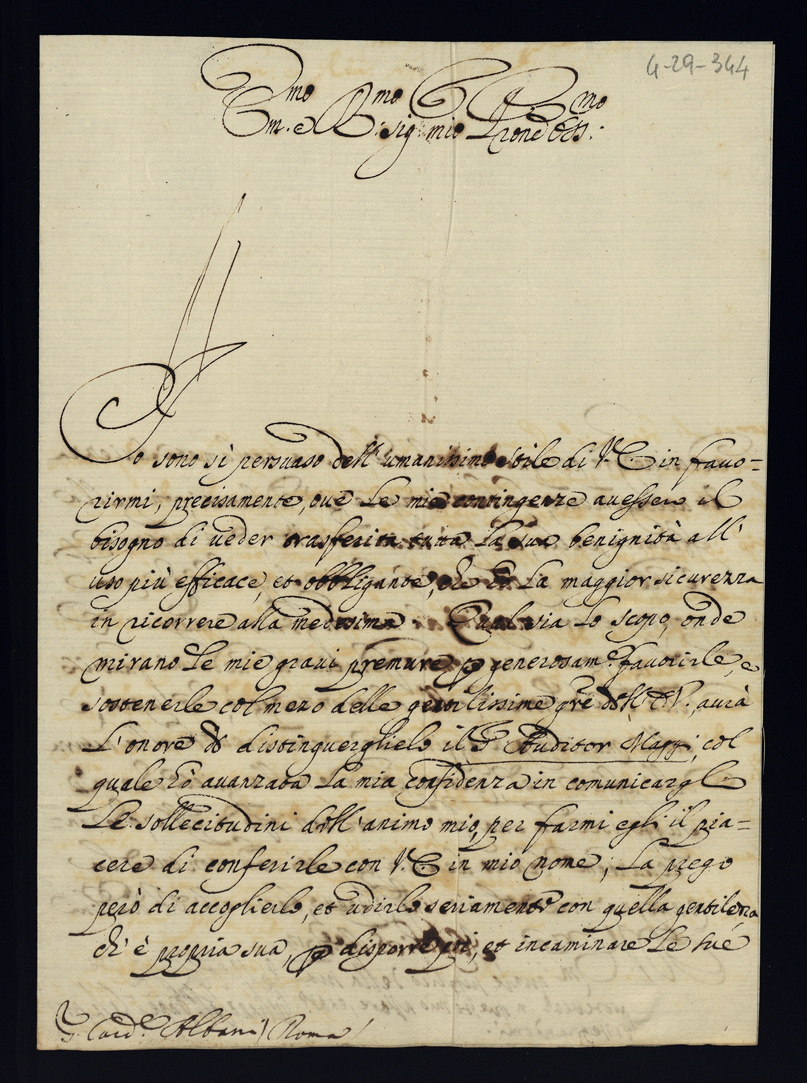 4-29-344
Em.mo e R.mo Sig: mio P.rone Oss.mo
Io sono sì persuaso dell'umanissimo stile di V. E. in favo=
rirmi, precisamente, ove le mie contingenze avessero il
bisogno di veder trasferita tutta la sua benignità all'
uso più efficace, et obbligante, che hò la maggior sicurezza
in ricorrere alla medesima. Qual sia lo scopo, onde
mirano le mie gravi premure p generosam.e favorirle, e
sostenerle col mezo delle gentilissime gře dell'E. V., avrà
l'onore di distinguerglielo il S. Auditor Maggi, col
quale hò avanzata la mia confidenza in comunicargl
le sollecitudini dell'animo mio, per farmi egli il pia=
cere di conferirle con V. E. in mio nome; la prego
però di accoglierlo, et udirlo seriamente con quella gentilezza
ch'è propria sua, p disporre poi et incaminare le sue
S. Card.e Albani) Roma